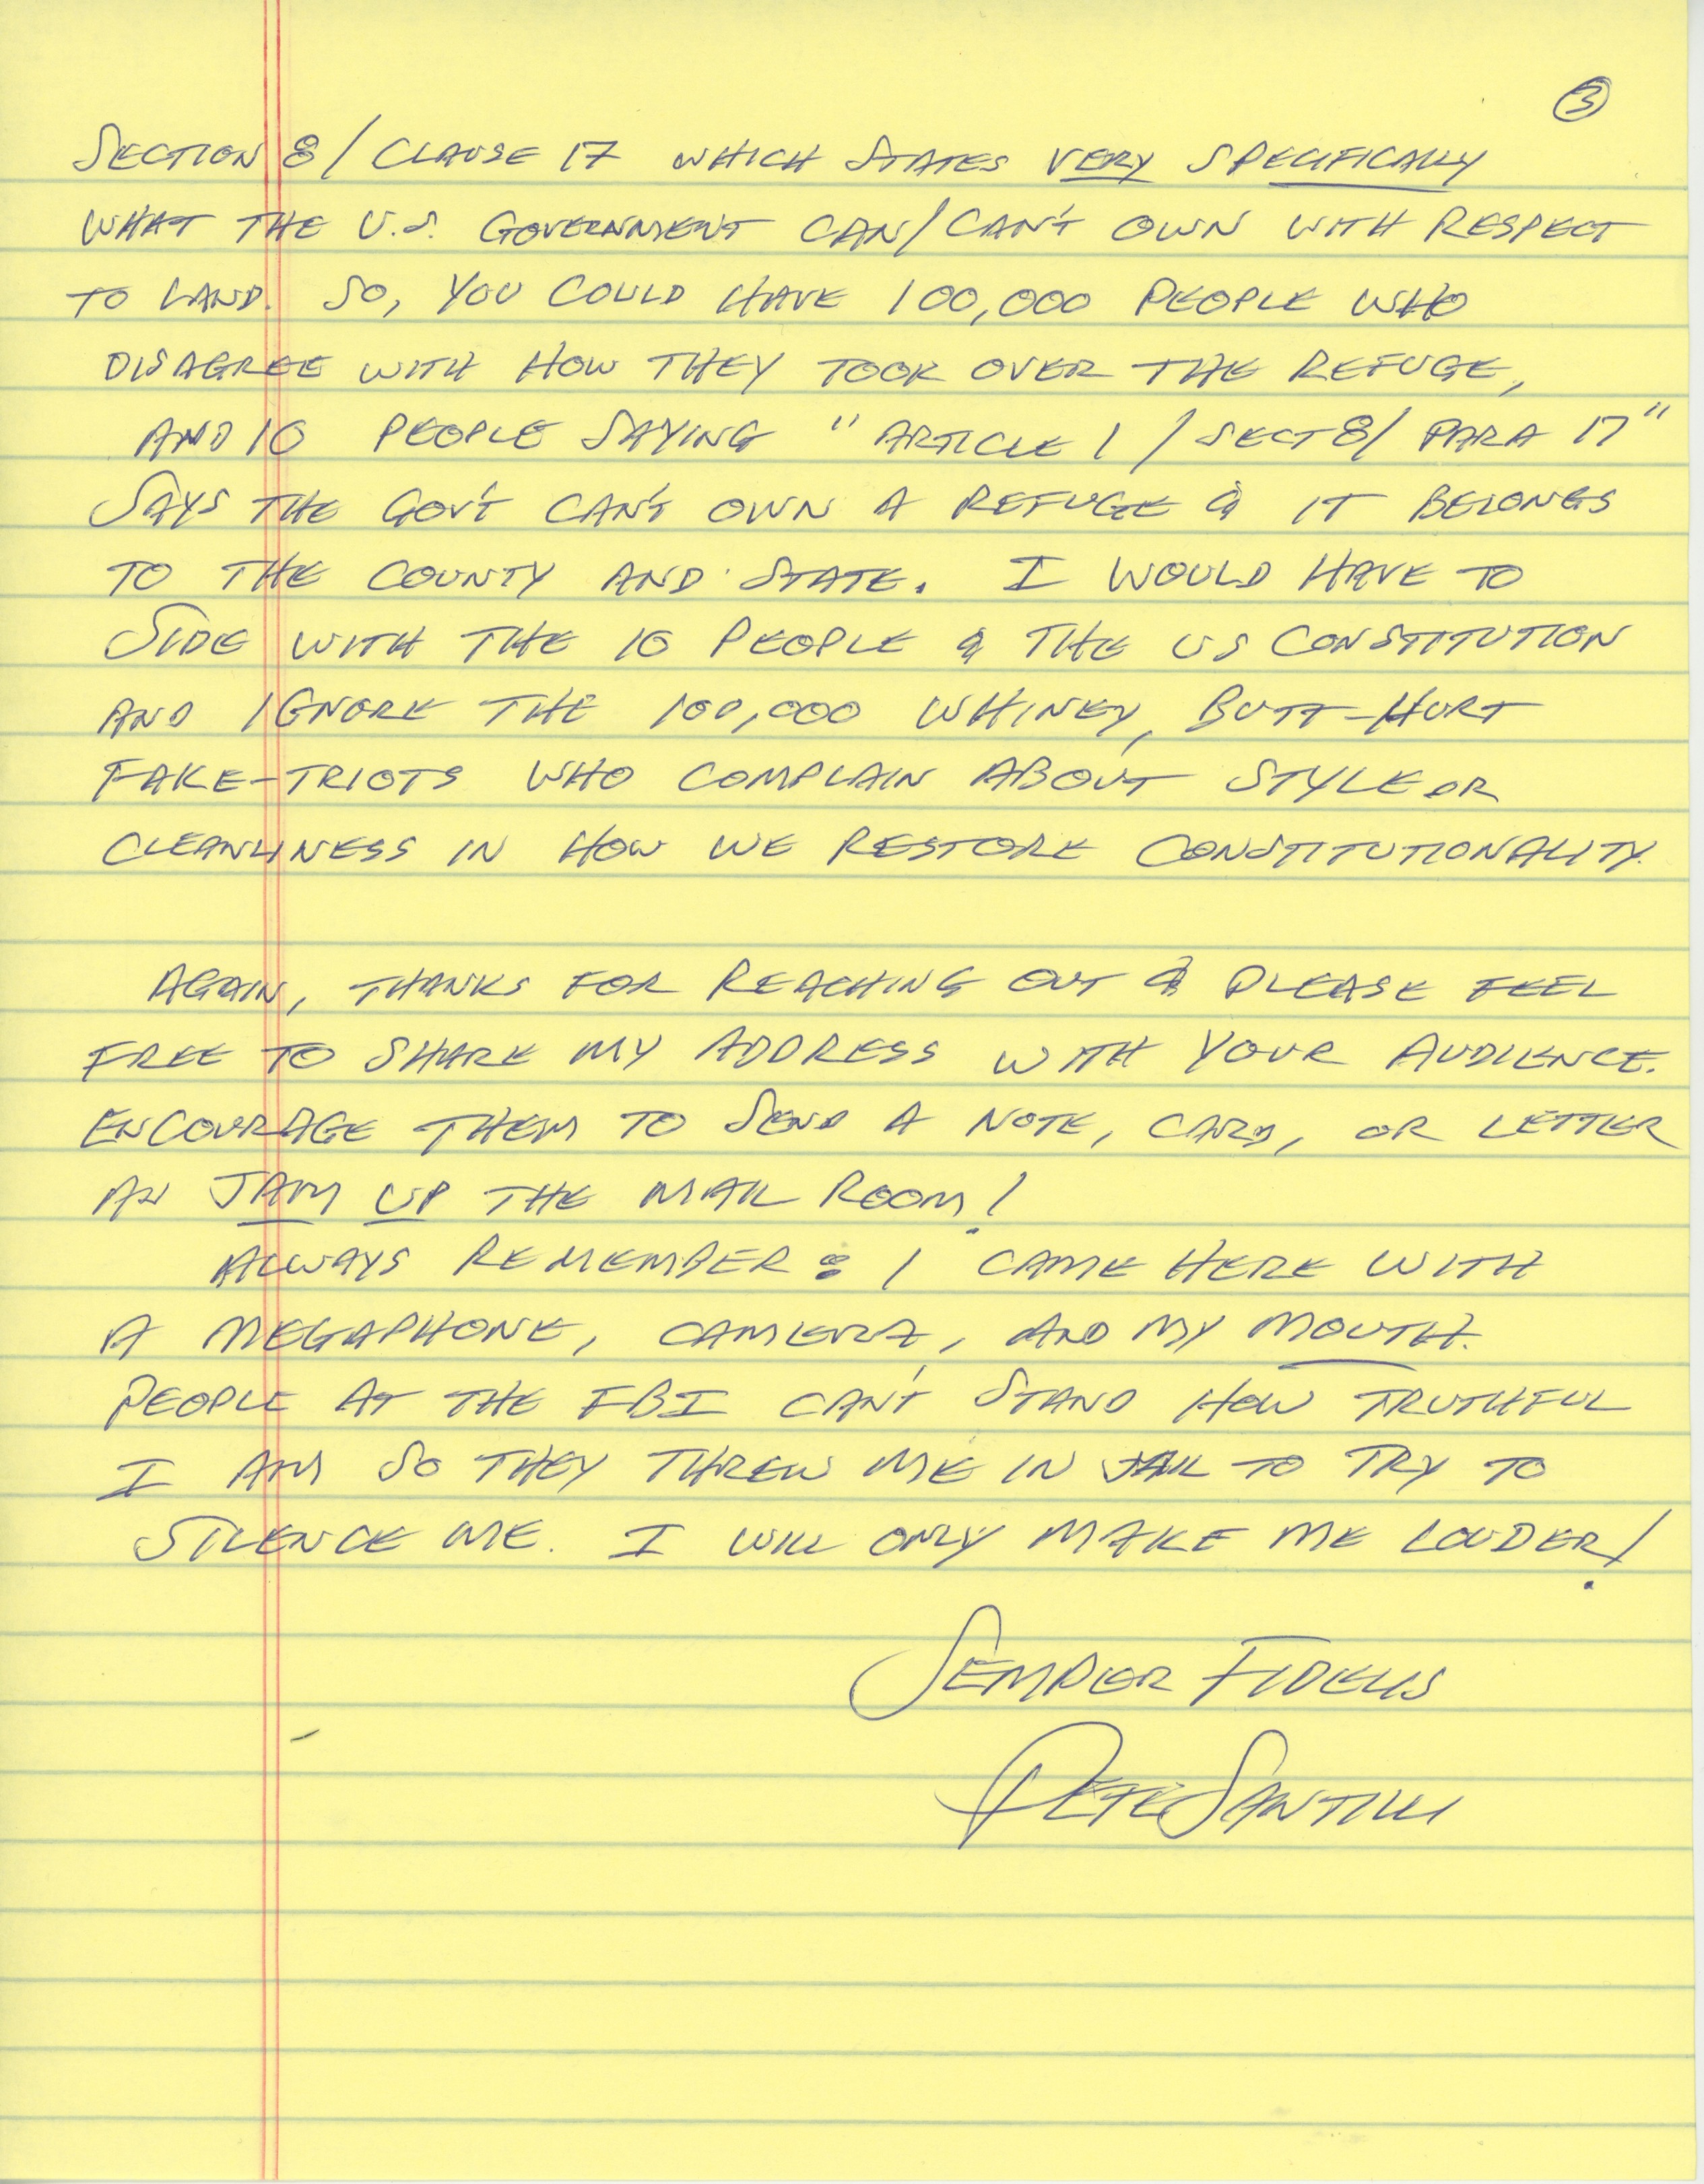 3
SECTION 8/ CLAUSE 17 WHICH STATES VERY SPECIFICALLY
WHAT THE U.S. GOVERNMENT CAN/CAN'T OWN WITH RESPECT
TO LAND. SO, YOU COULD HAVE 100,000 PEOPLE WHO
DISAGREE WITH HOW THEY TOOK OVER THE REFUGE,
AND 10 PEOPLE SAYING "ARTICLE 1 / SECT 8/ PARA 17"
SAYS THE GOV'T CAN'T OWN A REFUGE & IT BELONGS
TO THE COUNTY AND STATE. I WOULD HAVE TO
SIDE WITH THE 10 PEOPLE & THE US CONSTITUTION
AND IGNORE THE 100,000 WHINEY, BUTT-HURT
FAKE-TRIOTS WHO COMPLAIN ABOUT STYLE OR
CLEANLINESS IN HOW WE RESTORE CONSTITUTIONALITY.
AGAIN, THANKS FOR REACHING OUT & PLEASE FEEL
FREE TO SHARE MY ADDRESS WITH YOUR AUDIENCE.
ENCOURAGE THEM TO SEND A NOTE, CARD, OR LETTER
AN JAM UP THE MAIL ROOM!
ALWAYS REMEMBER: I CAME HERE WITH
A MEGAPHONE, CAMERA, AND MY MOUTH.
PEOPLE AT THE FBI CAN'T STAND HOW TRUTHFUL
I AM SO THEY THREW ME IN JAIL TO TRY TO
SILENCE ME. I WILL ONLY MAKE ME LOUDER!
SEMPER FIDELIS
PETE SANTILLI